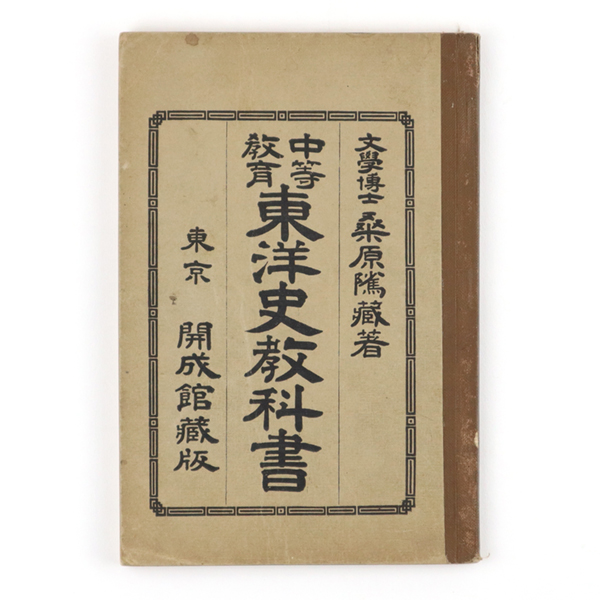 文學博士 桑原隲藏著
中等教育 東洋史教科書
東京 開成館藏版